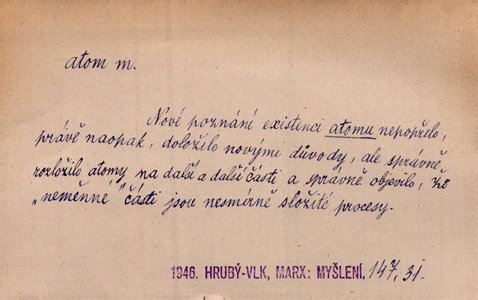 atom m.
Nové poznání existenci atomu nepopřelo,
právě naopak, doložilo novými důvody, ale správně
rozložilo atomy na další a další části a správně objevilo, že
„neměnné“ části jsou nesmírně složité procesy.
1946. HRUBÝ-VLK, MARX: MYŠLENÍ. 147, 31.